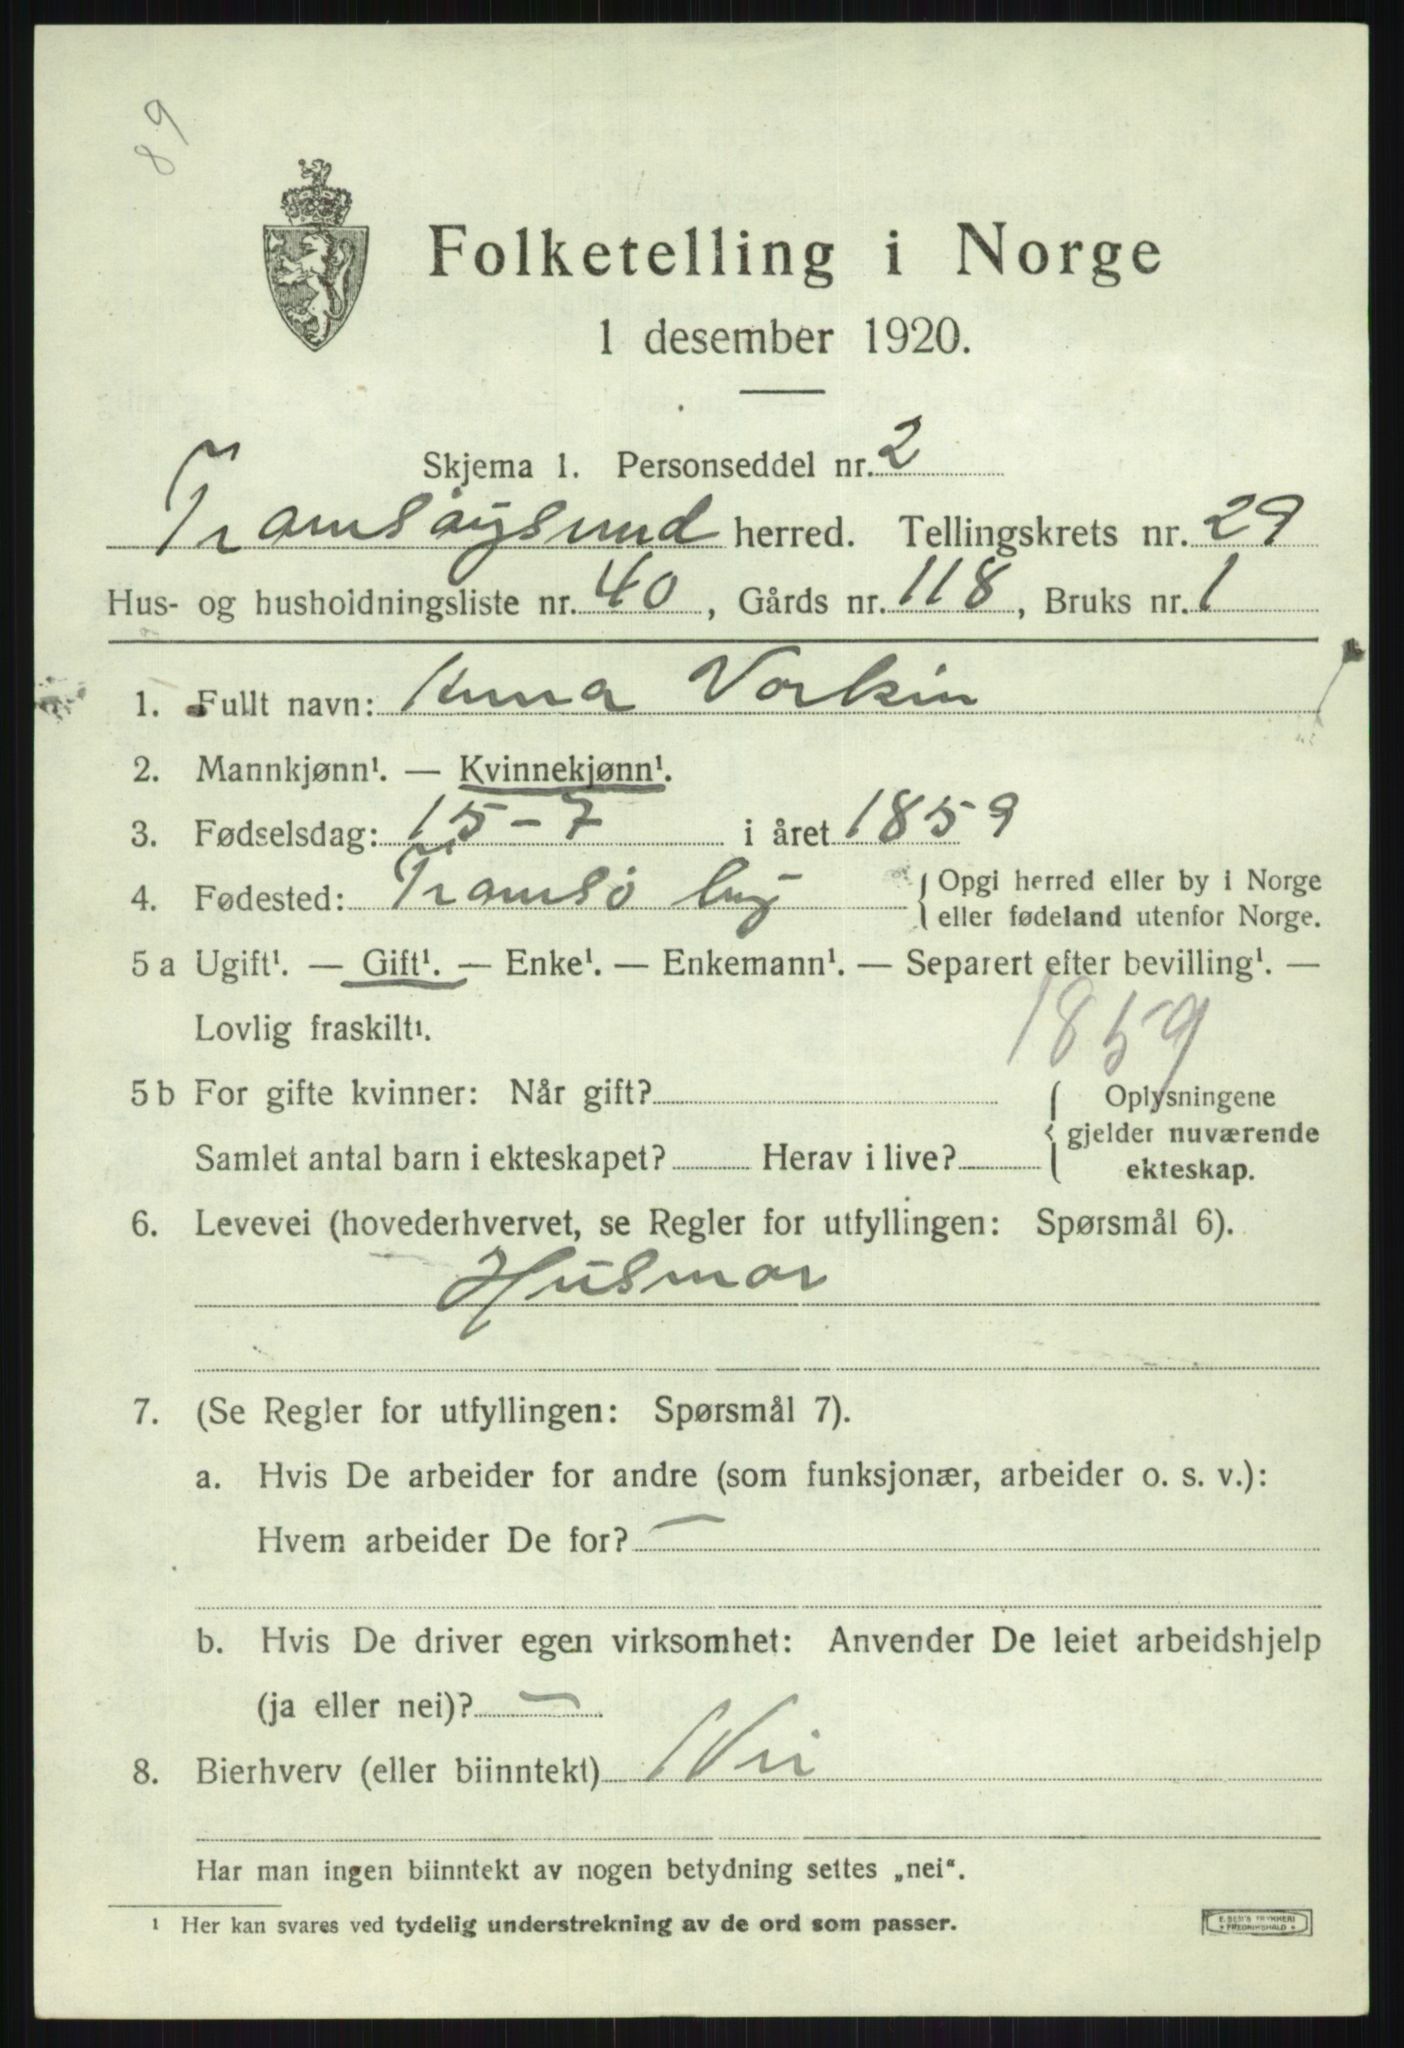 89
Folketelling i Norge
1 desember 1920.
Skjema 1. Personseddel nr. 2
Tromsøysund herred. Tellingskrets nr. 29
Hus- og husholdningsliste nr. 40, Gårds nr. 118, Bruks nr. 1
1. Fullt navn: Anna Vorkin
2. Mannkjønn¹. — Kvinnekjønn¹.
3. Fødselsdag: 15-7 i året 1859
4. Fødested: Tromsø by { Opgi herred eller by i Norge
eller fødeland utenfor Norge.
5 a Ugift¹. — Gift¹. — Enke¹. — Enkemann¹. — Separert efter bevilling¹. —
Lovlig fraskilt¹.
1859
5 b For gifte kvinner: Når gift? { Oplysningene
gjelder nuværende
Samlet antal barn i ekteskapet? Herav i live?
ekteskap.
6. Levevei (hovederhvervet, se Regler for utfyllingen: Spørsmål 6).
Husmor
7. (Se Regler for utfyllingen: Spørsmål 7).
a. Hvis De arbeider for andre (som funksjonær, arbeider o. s. v.):
Hvem arbeider De for? —
b. Hvis De driver egen virksomhet: Anvender De leiet arbeidshjelp
(ja eller nei)? —
8. Bierhverv (eller biinntekt) Nei
Har man ingen biinntekt av nogen betydning settes „nei“.
¹ Her kan svares ved tydelig understrekning av de ord som passer.
E. SEM'S TRYKKERI
FREDRIKSHALD